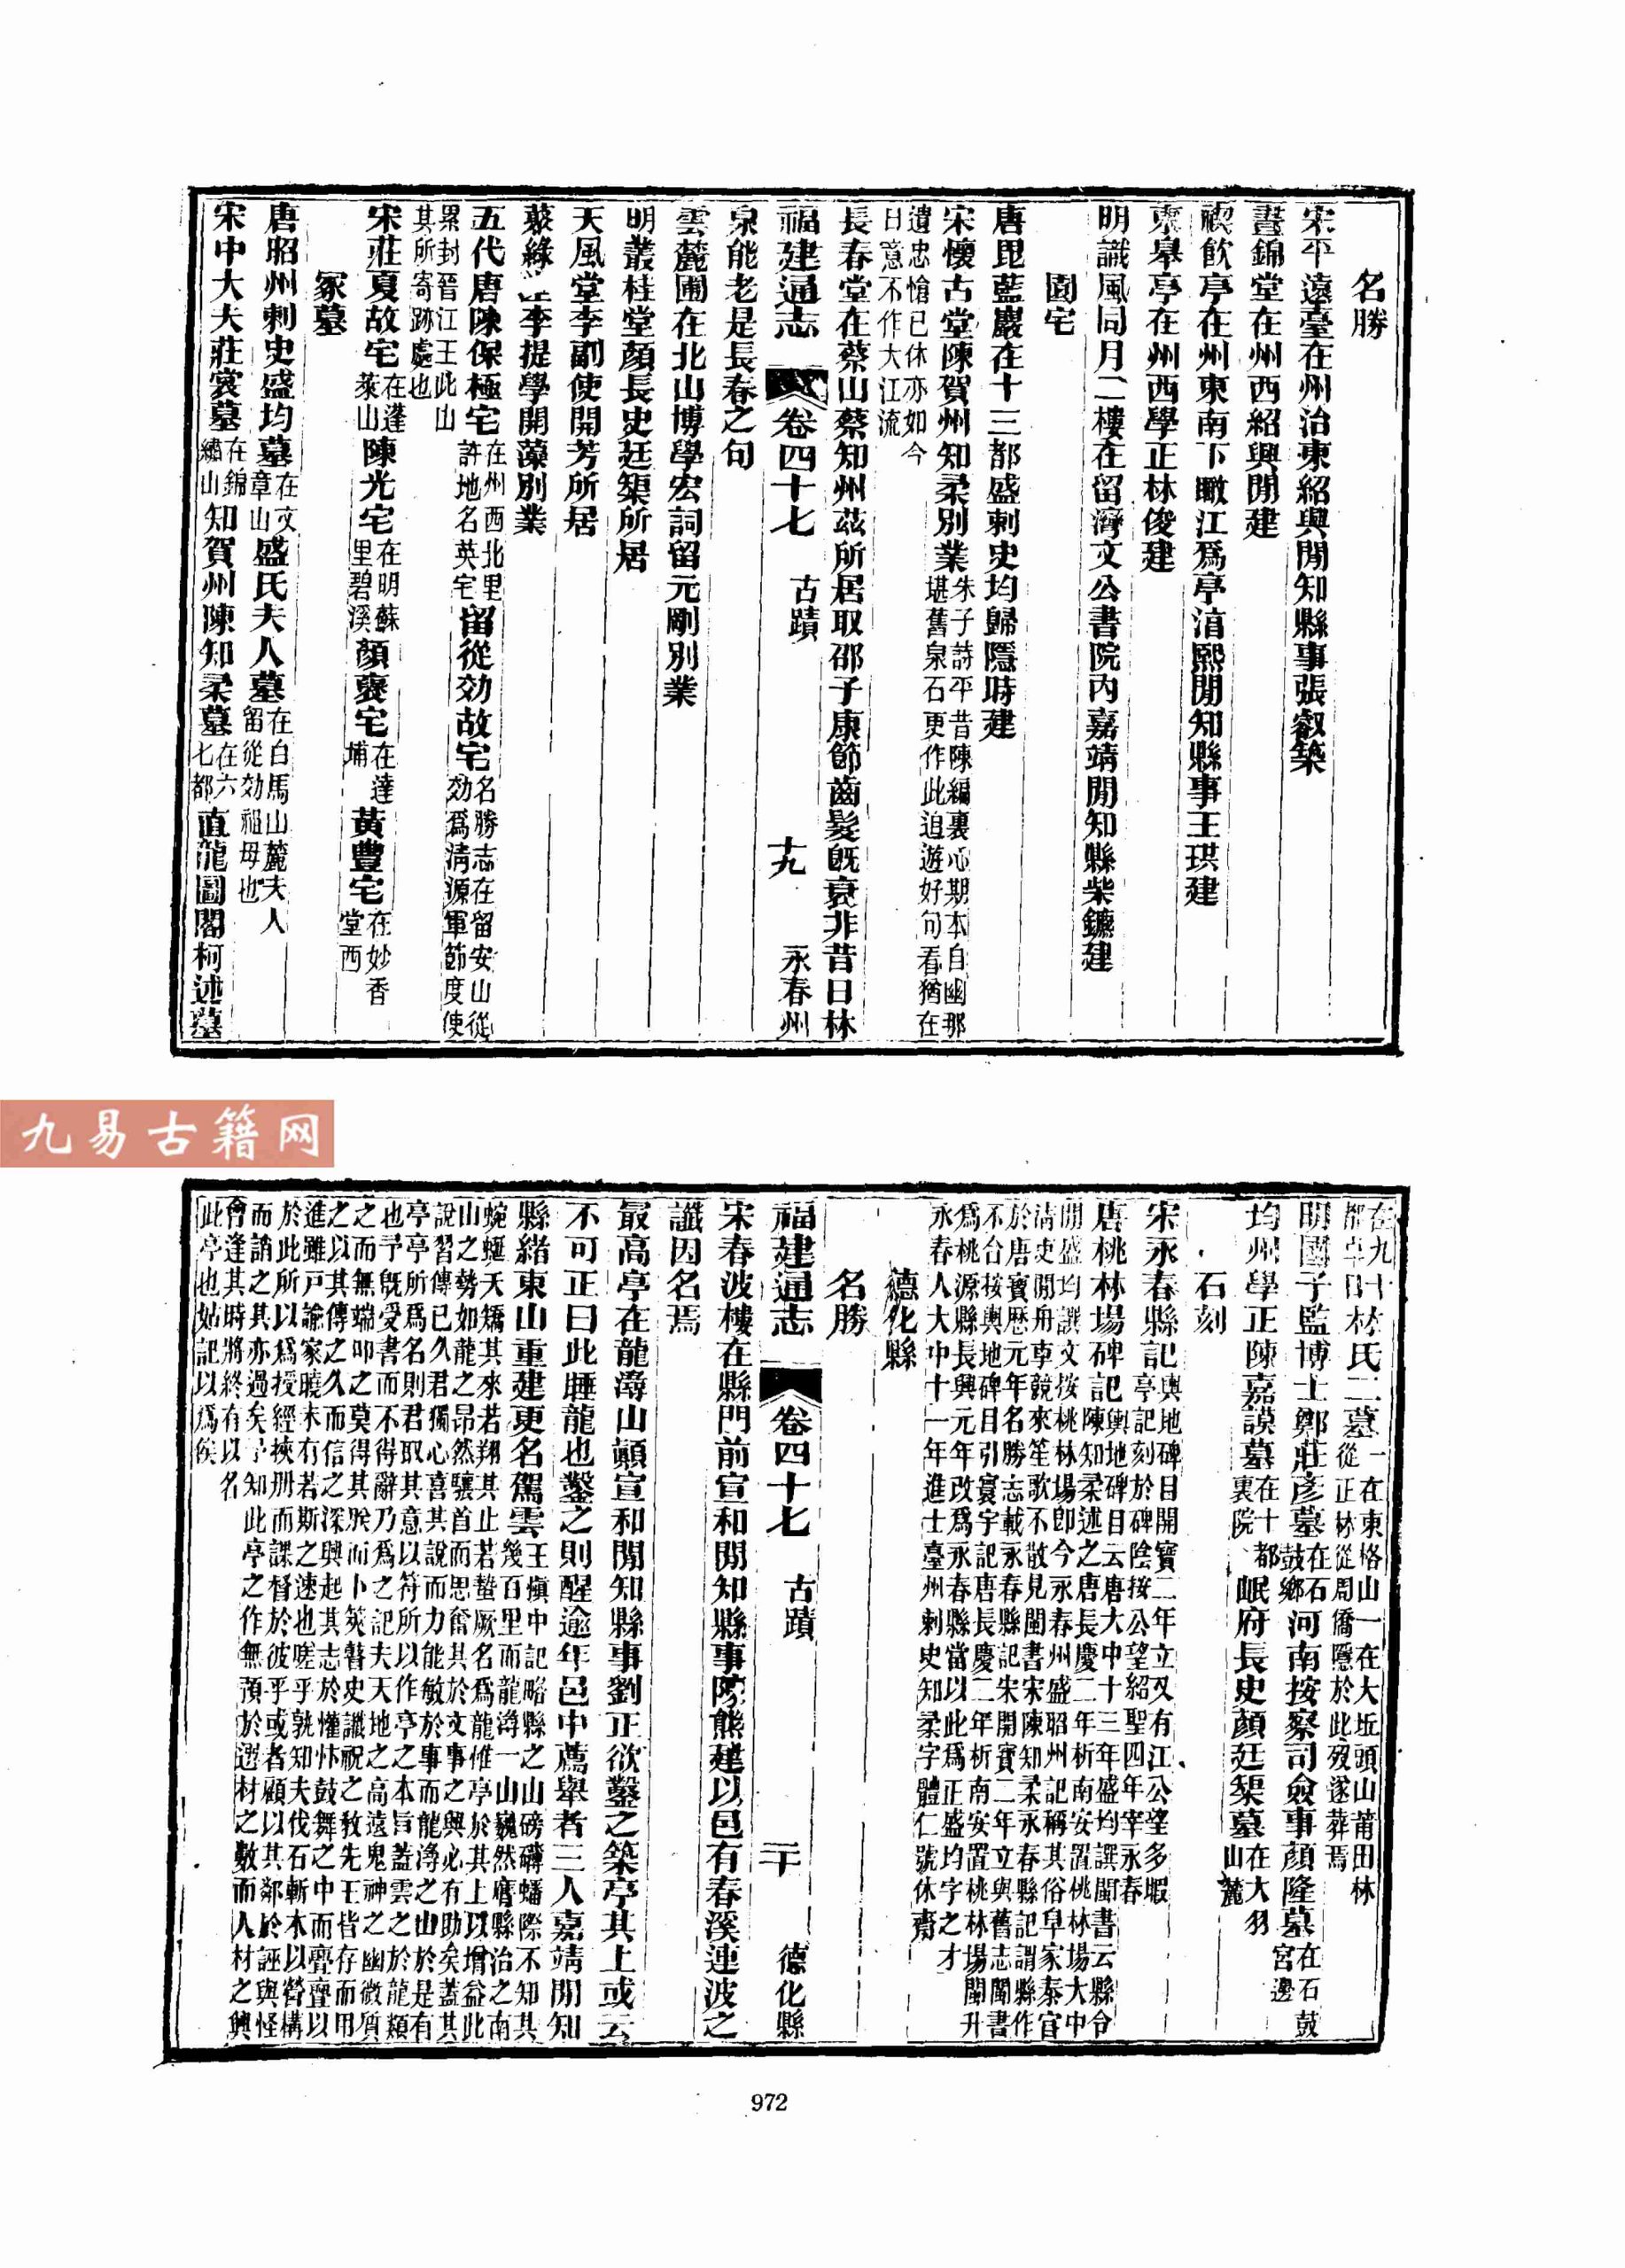 名勝
宋平遠臺在州治東紹興閒知縣事張叡築
晝錦堂在州西紹興閒建
禊飲亭在州東南下瞰江爲亭淯熙閒知縣事王珙建
東臯亭在州西學正林俊建
明識風同月二樓在留灣文公書院內嘉靖閒知縣柴鑣建
園宅
唐毘藍巖在十三都盛刺史均歸隱時建
宋懷古堂陳賀州知柔別業朱子詩平昔陳編裏心期本自幽那
堪舊泉石更作此追遊好句看猶在
遺忠愴已休亦如今
日意不作大江流
長春堂在蔡山蔡知州茲所居取邵子康節齒髮旣衰非昔日林
福建通志 卷四十七 古蹟 十九 永春州
泉能老是長春之句
雲麓圃在北山博學宏詞留元剛別業
明叢桂堂顏長史廷榘所居
天風堂李副使開芳所居
李提學開藻別業
五代唐陳保極宅在州西北里
許地名英宅留從効故宅名勝志在留安山從
効爲淸源軍節度使
累封晉江王此山
其所寄跡處也
宋莊夏故宅在蓬
萊山陳光宅在明蘇
里碧溪顏褎宅在達
埔黃豐宅在妙香
堂西
冢墓
唐昭州刺史盛均墓在文
章山盛氏夫人墓在白馬山麓夫人
留從効祖母也
宋中大夫莊寘墓在錦
繡山知賀州陳知柔墓在六
七都直龍圖閣柯述墓
九易古籍网
在九十
都卓日林氏二墓一在東格山一在大坵頭山莆田林
從正林從周僑隱於此歿遂葬焉
明國子監博士鄭莊彥墓在石
鼓鄉河南按察司僉事顏隆墓在石鼓
宮邊
均州學正陳嘉謨墓在十都
裏院岷府長史顏廷榘墓在大羽
山麓
石刻
宋永春縣記輿地碑目開寶二年立又有江公望多暇
亭記刻於碑陰按公望紹聖四年宰永春
唐桃林場碑記輿地碑目云唐大中十三年盛均譔閩書云縣令
陳知柔述之唐長慶二年析南安置桃林場大中
閒盛均譔文按桃林場卽今永春州盛昭州記稱其俗阜家泰官
淸吏閒舟車競來笙歌不散見閩書宋陳知柔永春縣記謂縣作
於唐寶歷元年名勝志載永春縣記朱開寶二年立與舊志閩書
不合按輿地碑目引寰宇記唐長慶二年析南安置桃林場閩升
爲桃源縣長興元年改爲永春縣當以此爲正盛均字之才
永春人大中十一年進士臺州刺史知柔字體仁號休齋
德化縣
名勝
福建通志 卷四十七 古蹟 二十 德化縣
宋春波樓在縣門前宣和閒知縣事陳熊建以邑有春溪連波之
讖因名焉
最高亭在龍潯山顚宣和閒知縣事劉正欲鑿之築亭其上或云
不可正曰此睡龍也鑿之則醒逾年邑中薦舉者三人嘉靖閒知
縣緒東山重建更名駕雲王愼中記略縣之山磅礴蟠際不知其
幾百里而龍潯一山巍然膺縣治之南
蜿蜒天矯其來若翔其止若蟄厥名爲龍惟亭於其上以增益此
山之勢如龍之昂然驤首而思奮其於文事之興必有助矣蓋其
說習傳已久君獨心喜其說而力能敏於事而龍潯之山於是有
亭亭所爲名則君取其意以符所以作亭之本旨蓋雲之於龍類
也予旣受書而不得辭乃爲之記夫天地之高遠鬼神之幽微質
之而無端叩之莫得其眹而卜筴瞽史讖祝之敎先王皆存而用
之以其傳之久而信之深興起其志於懽忭鼓舞之中而亹亹以
進雖戸諭家曉未有若斯之速也嗟乎孰知夫伐石斬木以營構
於此所以爲授經挾册而課督於彼乎或者顧以其鄰於誣與怪
而誚之其亦過矣予知此亭之作無預於選材之數而人材之興
會逢其時將終有以名
此亭也姑記以爲俟
972